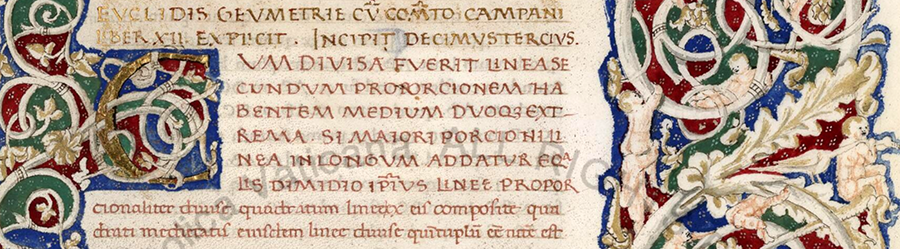 EVCLIDIS GEVMETRIE CŪ COM̄TO CAMPANI
LIBER XII EXPLICIT . INCIPIT DECIMVSTERCIVS.
CVM DIVISA FVERIT LINEA SE
CVNDVM PROPORCIONEM HA
BENTEM MEDIUM DVOQꝪ EXT
REMA SI MAIORI PORCIONI LI
NEA IN LONGVM ADDATVR EQᵃ
LIS DIMIDIO IP̄IVS LINEE PROPOR
cionaliter diuise quadratum lineę ex eis composite qua
drati medietatis eiusdem linee diuise quĩtuplũ eē nc̄ē est